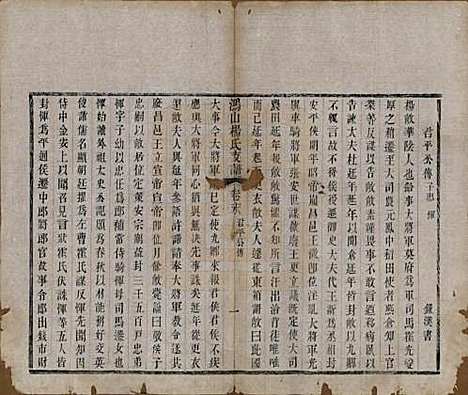 君平公傳 子忠 惲
錄漢書
楊敞華陰人也給事大將軍莫府爲軍司馬霍光愛
厚之稍遷至大司農元鳳中稻田使者燕倉知上官
桀等反謀以告敞敞素謹畏事不敢言乃移病臥以
告諫大夫杜延年延年
安平侯明年昭帝崩昌邑王徵卽位淫亂大將軍光
與車騎將軍張安世謀欲廢王更立
延年報敞敞驚懼不知所言汗出洽背徒唯唯
而已延年起至更衣敞夫人遽從東箱謂敞曰此國
鴻山楊氏支譜
君平公傳
一
大事今大將軍議已定使九卿來報君侯君侯不疾
應與大將軍同心猶與無決先事誅矣延年從更衣
還敞夫人與延年參語許諾請奉大將軍教令遂共
廢昌邑王立宣帝宣帝卽位月餘敞薨諡曰敬侯子
忠嗣以敞居位定策安宗廟益封三千五百戶忠弟
惲字子幼以忠任爲郎補常侍騎惲母司馬遷女也惲
始讀外祖太史公記頗爲春秋以材能稱好交英
俊諸儒名顯朝廷擢爲左曹霍氏謀反惲先聞知因
侍中金安上以聞召見言狀霍氏伏誅惲等五人皆
封惲爲平通侯遷中郎將郎官故事令郎出錢市財